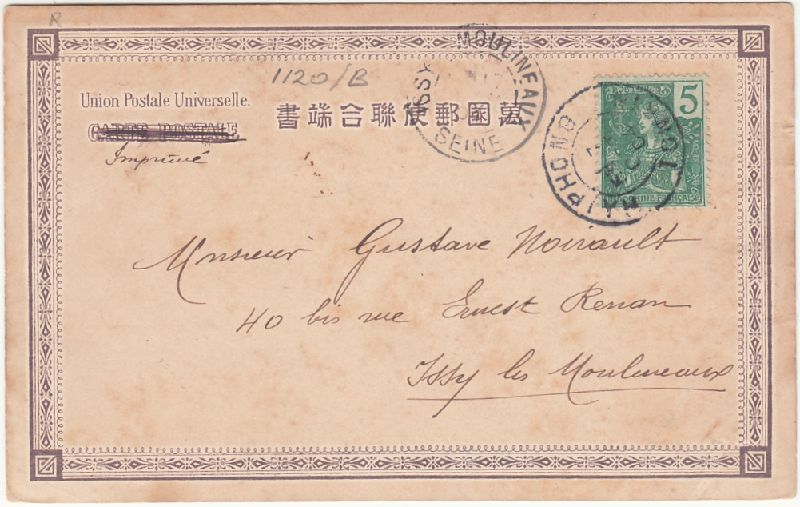 R
1120/B
Union Postale Universelle.
CARTE POSTALE
Imprimé
書端合聯便郵國萬
ISSY MOULINEAUX
SEINE
HAIPHONG
TONKIN
5
Monsieur Gustave Noirault
40 bis rue Ernest Renan
Issy les Moulineaux